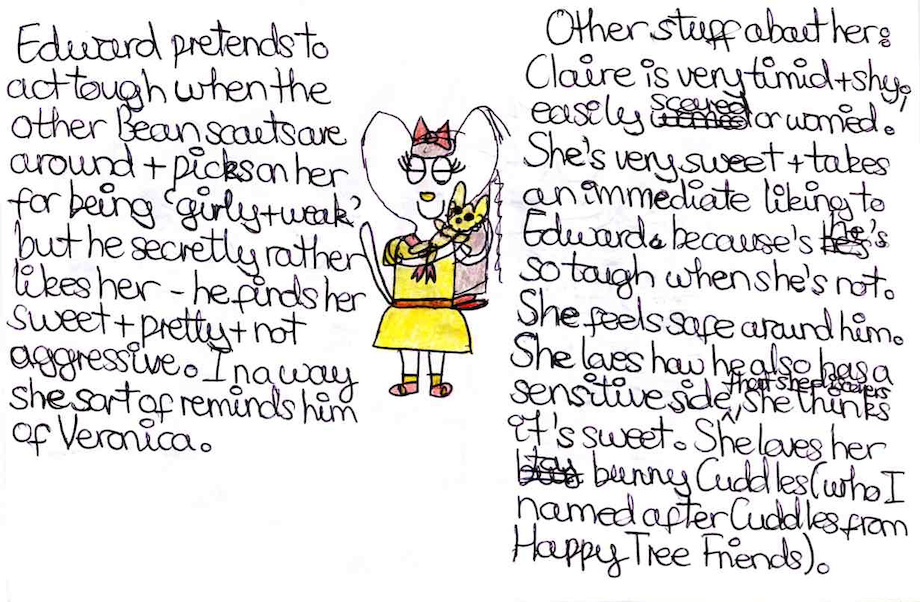 Edward pretends to
act tough when the
other Bean scouts are
around + picks on her
for being 'girly + weak'
but he secretly rather
likes her - he finds her
sweet + pretty + not
aggressive. In a way
she sort of reminds him
of Veronica.
Other stuff about her:
Claire is very timid + shy,
easily scared or worried.
She's very sweet + takes
an immediate liking to
Edward because's he's
so tough when she's not.
She feels safe around him.
She loves how he also has a
sensitive side that she discovers she thinks
it's sweet. She loves her
toy bunny Cuddles (who I
named after Cuddles from
Happy Tree Friends).